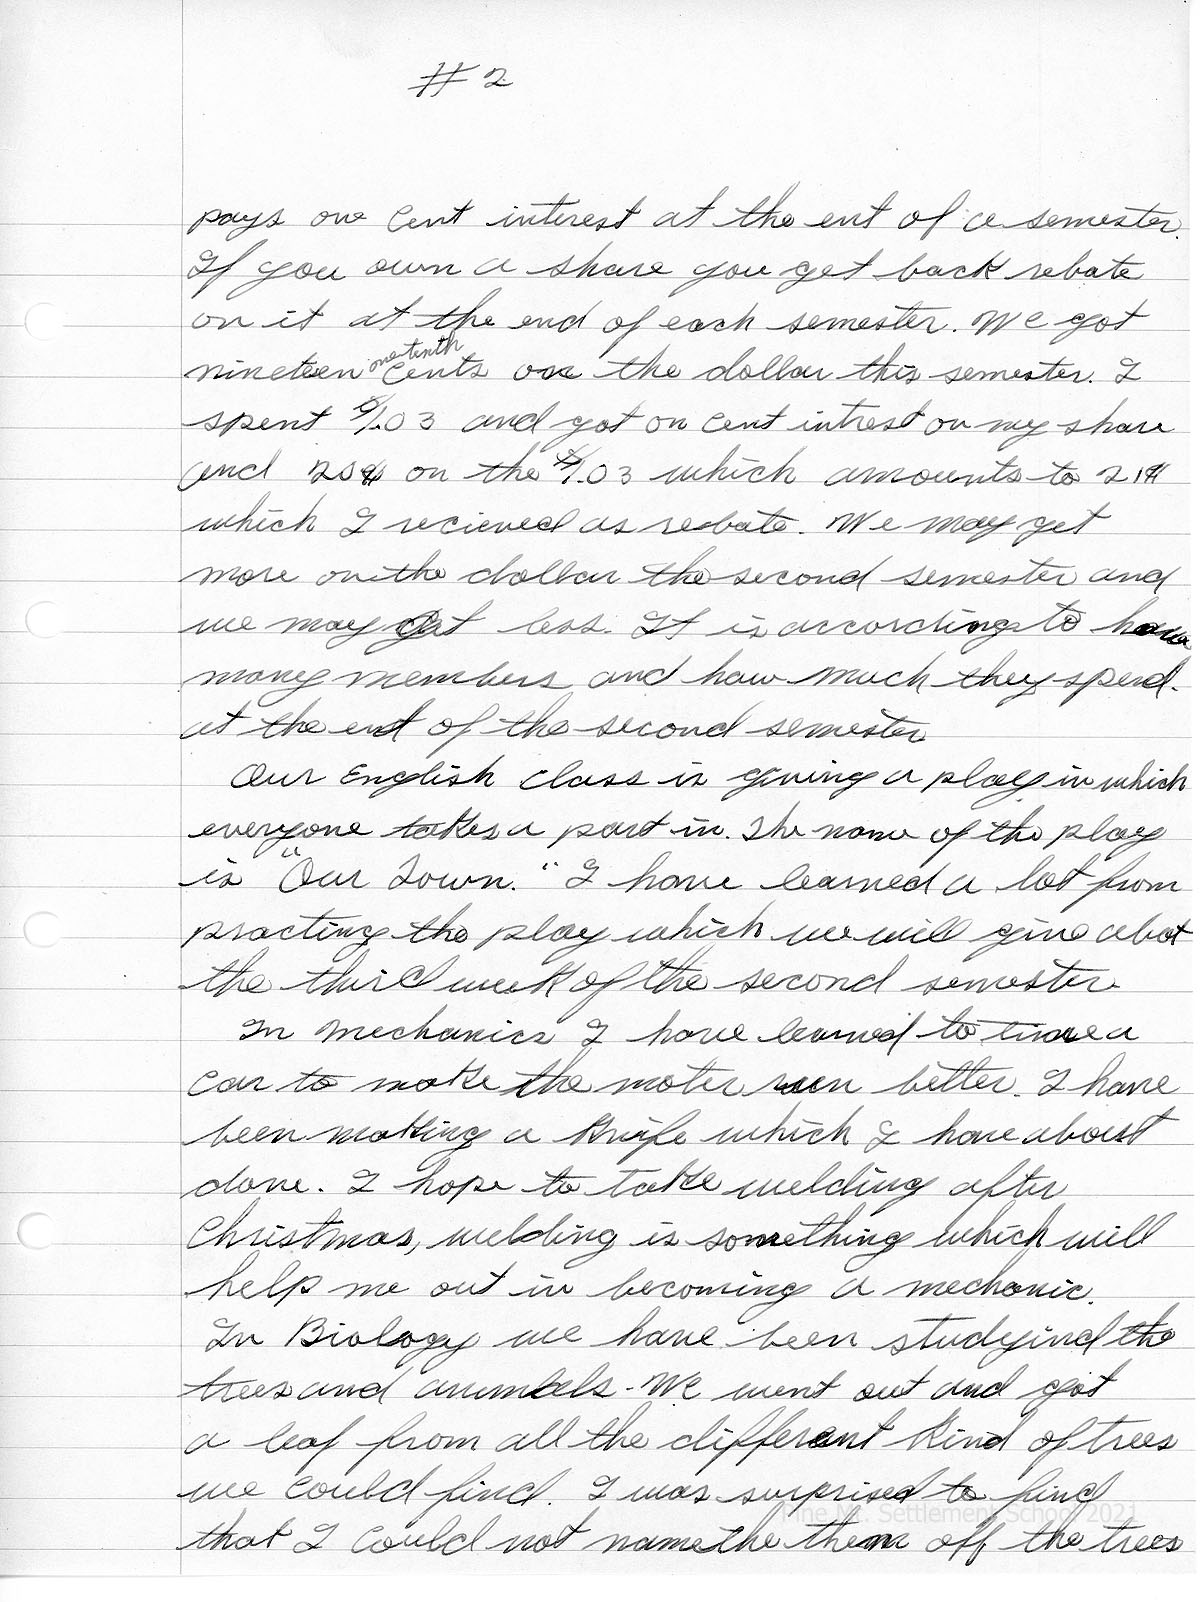 #2
pays one cent interest at the ent of a semester.
If you own a share you get back rebate
on it at the end of each semester. We got
one tenth
nineteen cents on the dollar this semester. I
spent $1.03 and got on cent intrest on my share
and 20¢ on the $1.03 which amounts to 21¢
which I recieved as rebate. We may get
more on the dollar the second semester and
we may get less. It is according to how
many members and how much they spend
at the end of the second semester
Our English class is giving a play in which
everyone takes a part in. The name of the play
is "Our Town." I have learned a lot from
practing the play which we will give abot
the third week of the second semester.
In Mechanics I have learned to tune a
car to make the moter run better. I have
been making a knife which I have about
done. I hope to take welding after
Christmas, welding is something which will
help me out in becoming a mechanic.
In Biology we have been studyind the
trees and anumbels. We went out and got
a leaf from all the different kind of trees
we could find. I was surprised to find
Pine Mt. Settlement School 2021
that I could not name the them off the trees